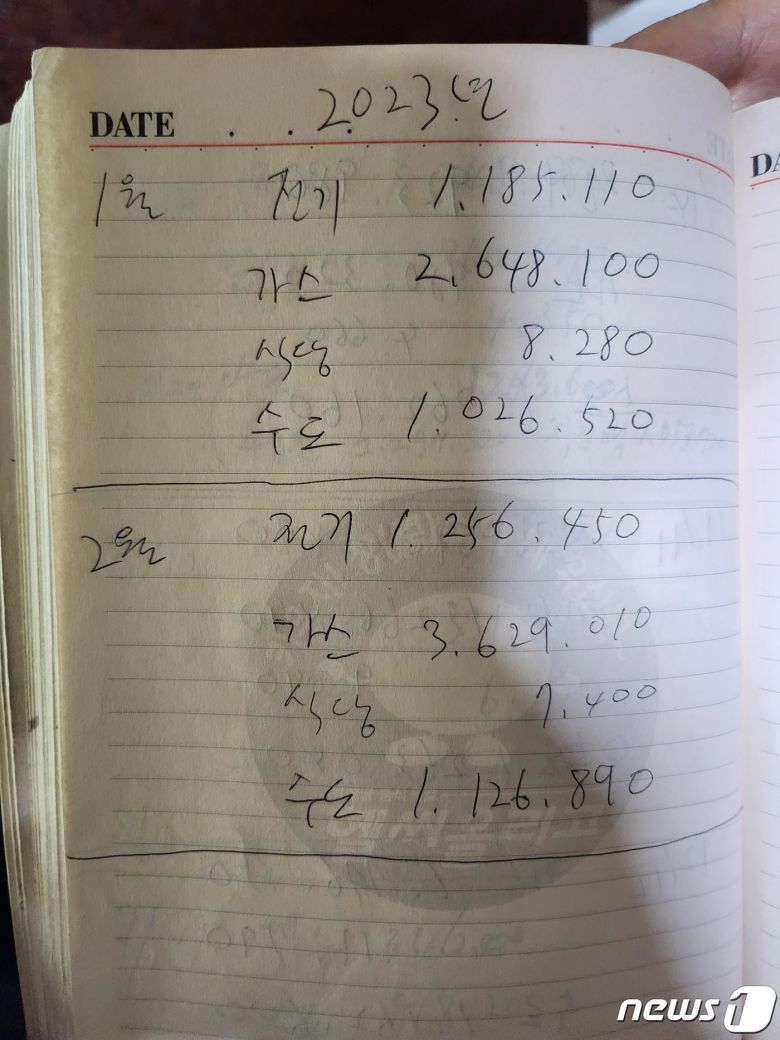 DATE . . 2023년
1월 전기 1.185.110
가스 2.648.100
식당 8.280
수도 1.026.520
2월 전기 1.256.450
가스 3.629.010
식당 7.400
수도 1.126.890
DA
news1